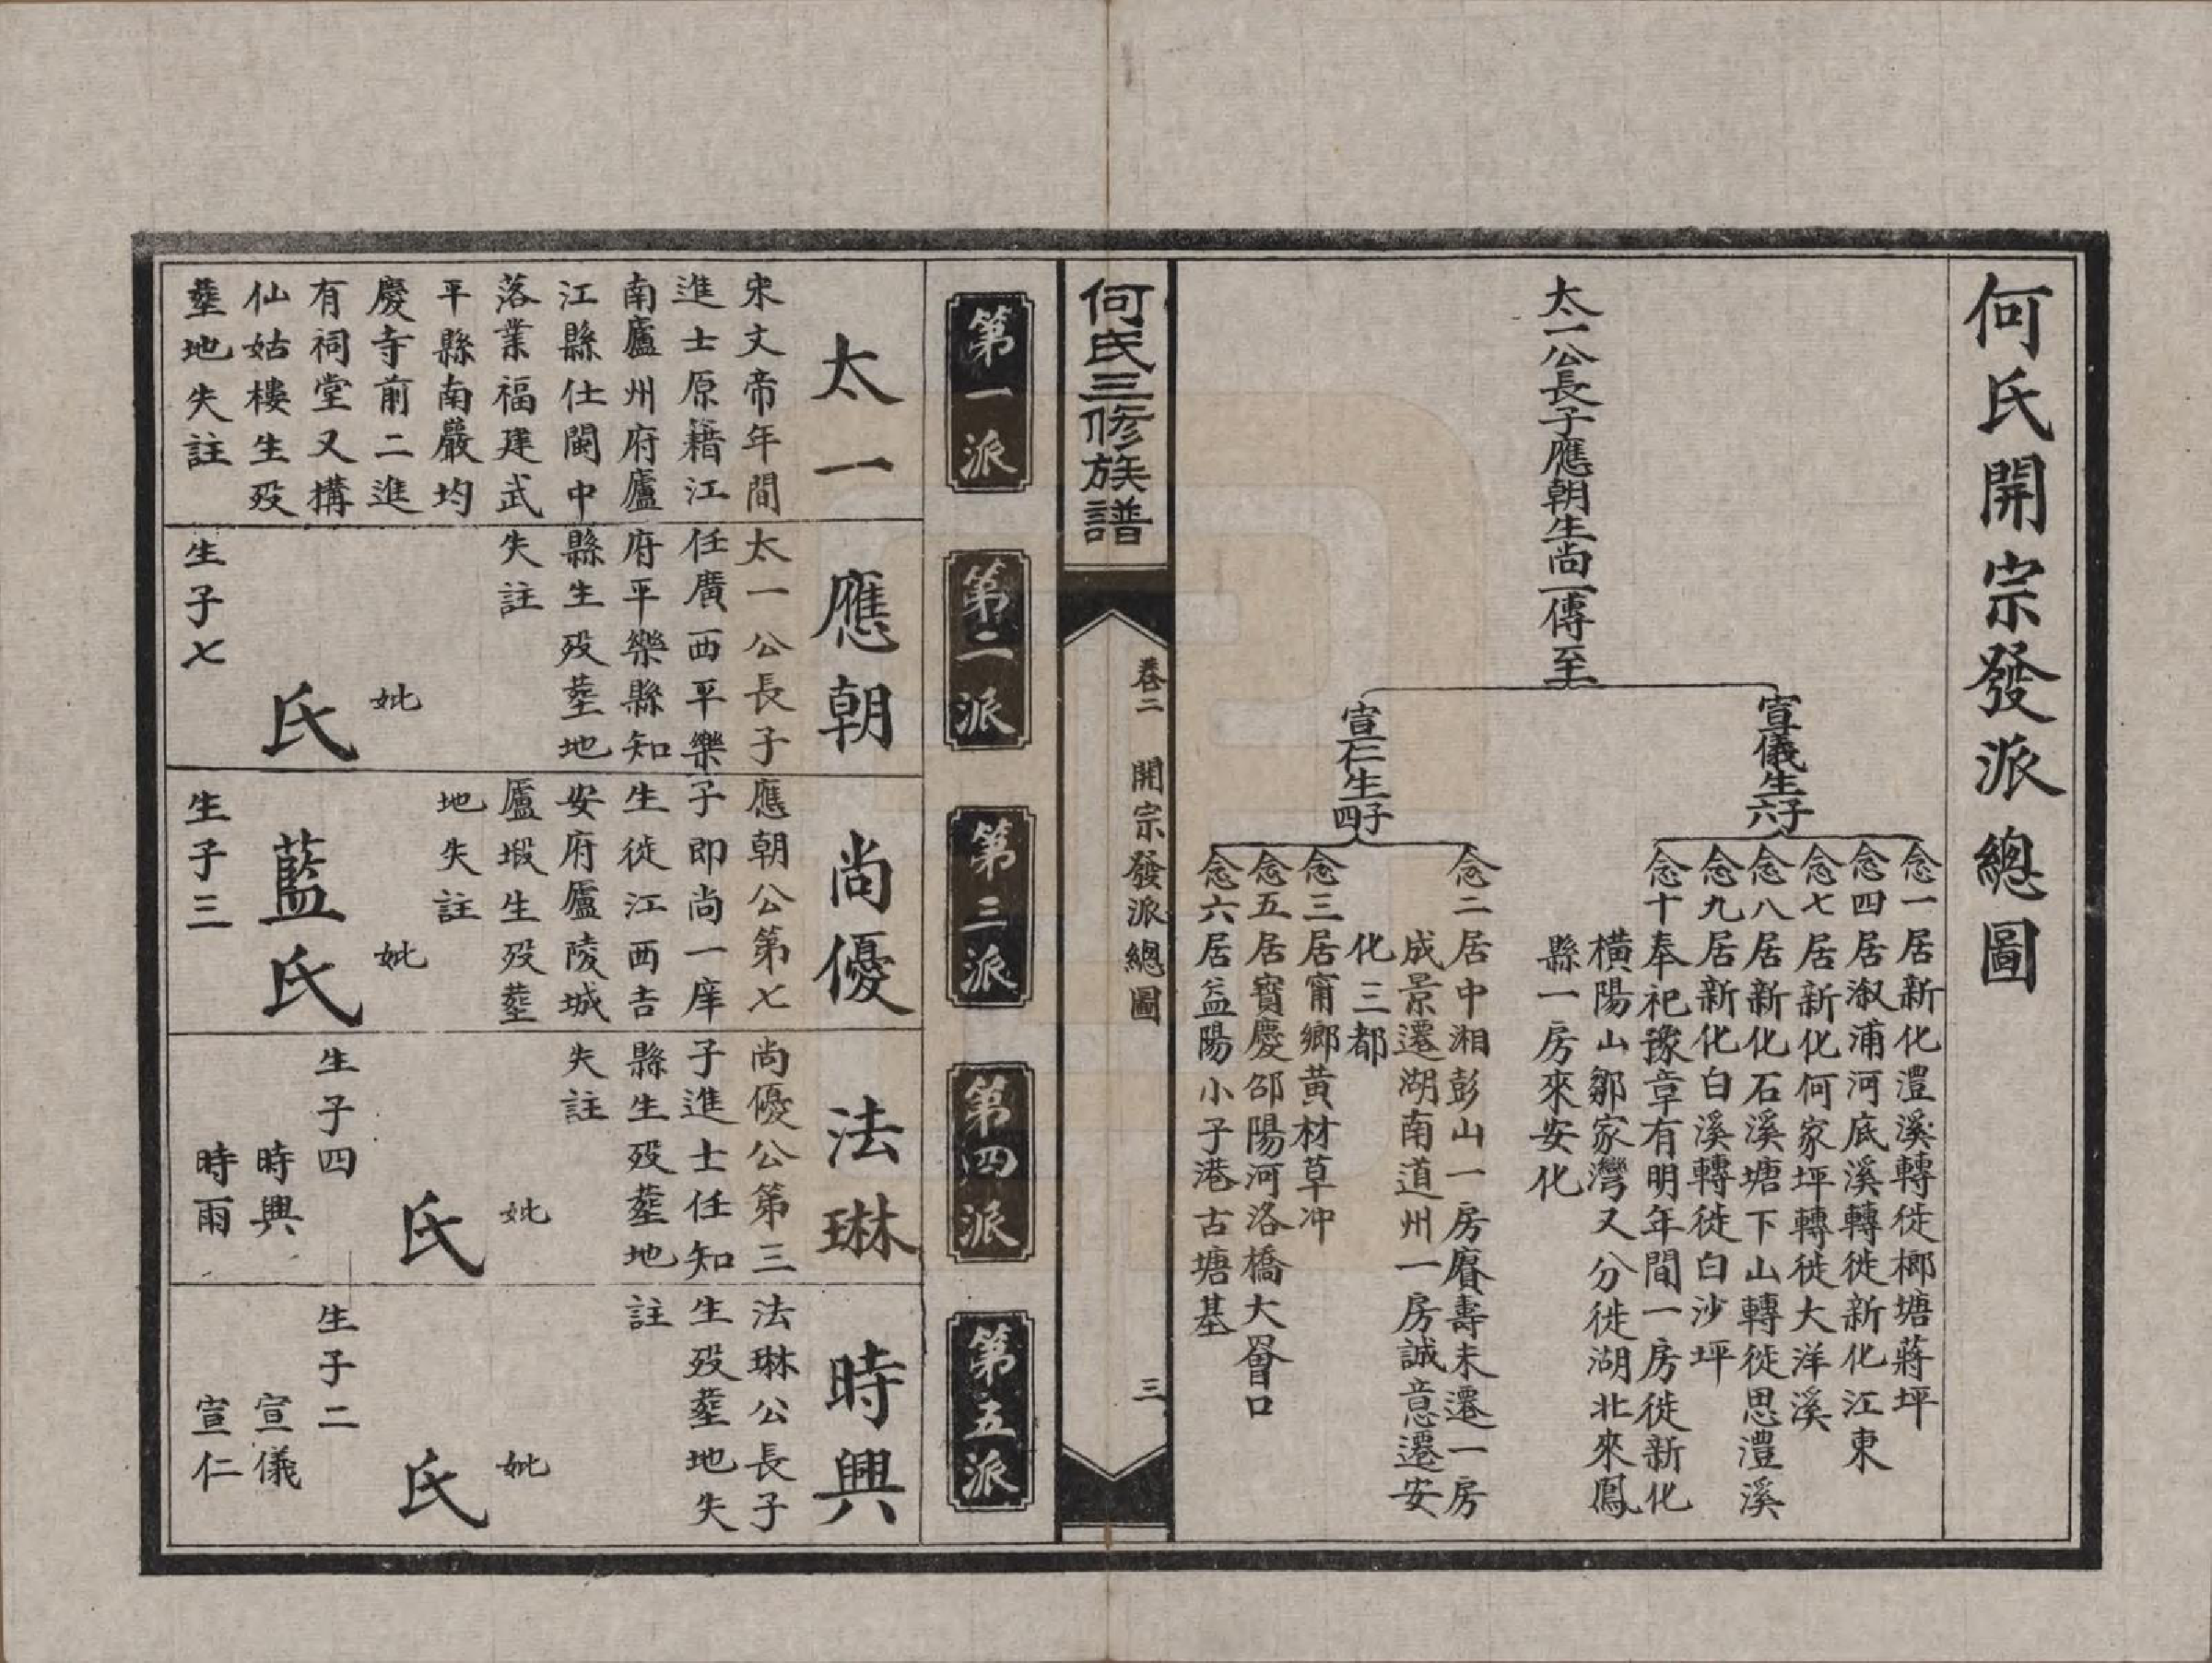 何氏開宗發派總圖
太一公長子應朝生尚一傳至
宣儀生六子
念一居新化澧溪轉徙榔塘蔣坪
念四居溆浦河底溪轉徙新化江東
念七居新化何家坪轉徙大洋溪
念八居新化石溪塘下山轉徙思澧溪
念九居新化白溪轉徙白沙坪
念十奉祀豫章有明年間一房徙新化
橫陽山鄒家灣又分徙湖北來鳳
縣一房來安化
宣仁生四子
念二居中湘彭山一房賡壽未遷一房
成景遷湖南道州一房誠意遷安
化三都
念三居甯鄉黃材草冲
念五居寶慶邵陽河洛橋大罾口
念六居益陽小子港古塘基
何氏三修族譜
卷二 開宗發派總圖
三
第一派
太一
宋文帝年間
進士原籍江
南廬州府廬
江縣仕閩中
落業福建武
平縣南嚴均
慶寺前二進
有祠堂又搆
仙姑樓生歿
塟地失註
第二派
應朝
太一公長子
任廣西平樂
府平樂縣知
縣生歿塟地
失註
妣
氏
生子七
第三派
尚優
應朝公第七
子即尚一庠
生徙江西吉
安府廬陵城
廬塅生歿塟
地失註
妣
藍氏
生子三
第四派
法琳
尚優公第三
子進士任知
縣生歿塟地
失註
妣
氏
生子四
時興
時雨
第五派
時興
法琳公長子
生歿塟地失
註
妣
氏
生子二
宣儀
宣仁